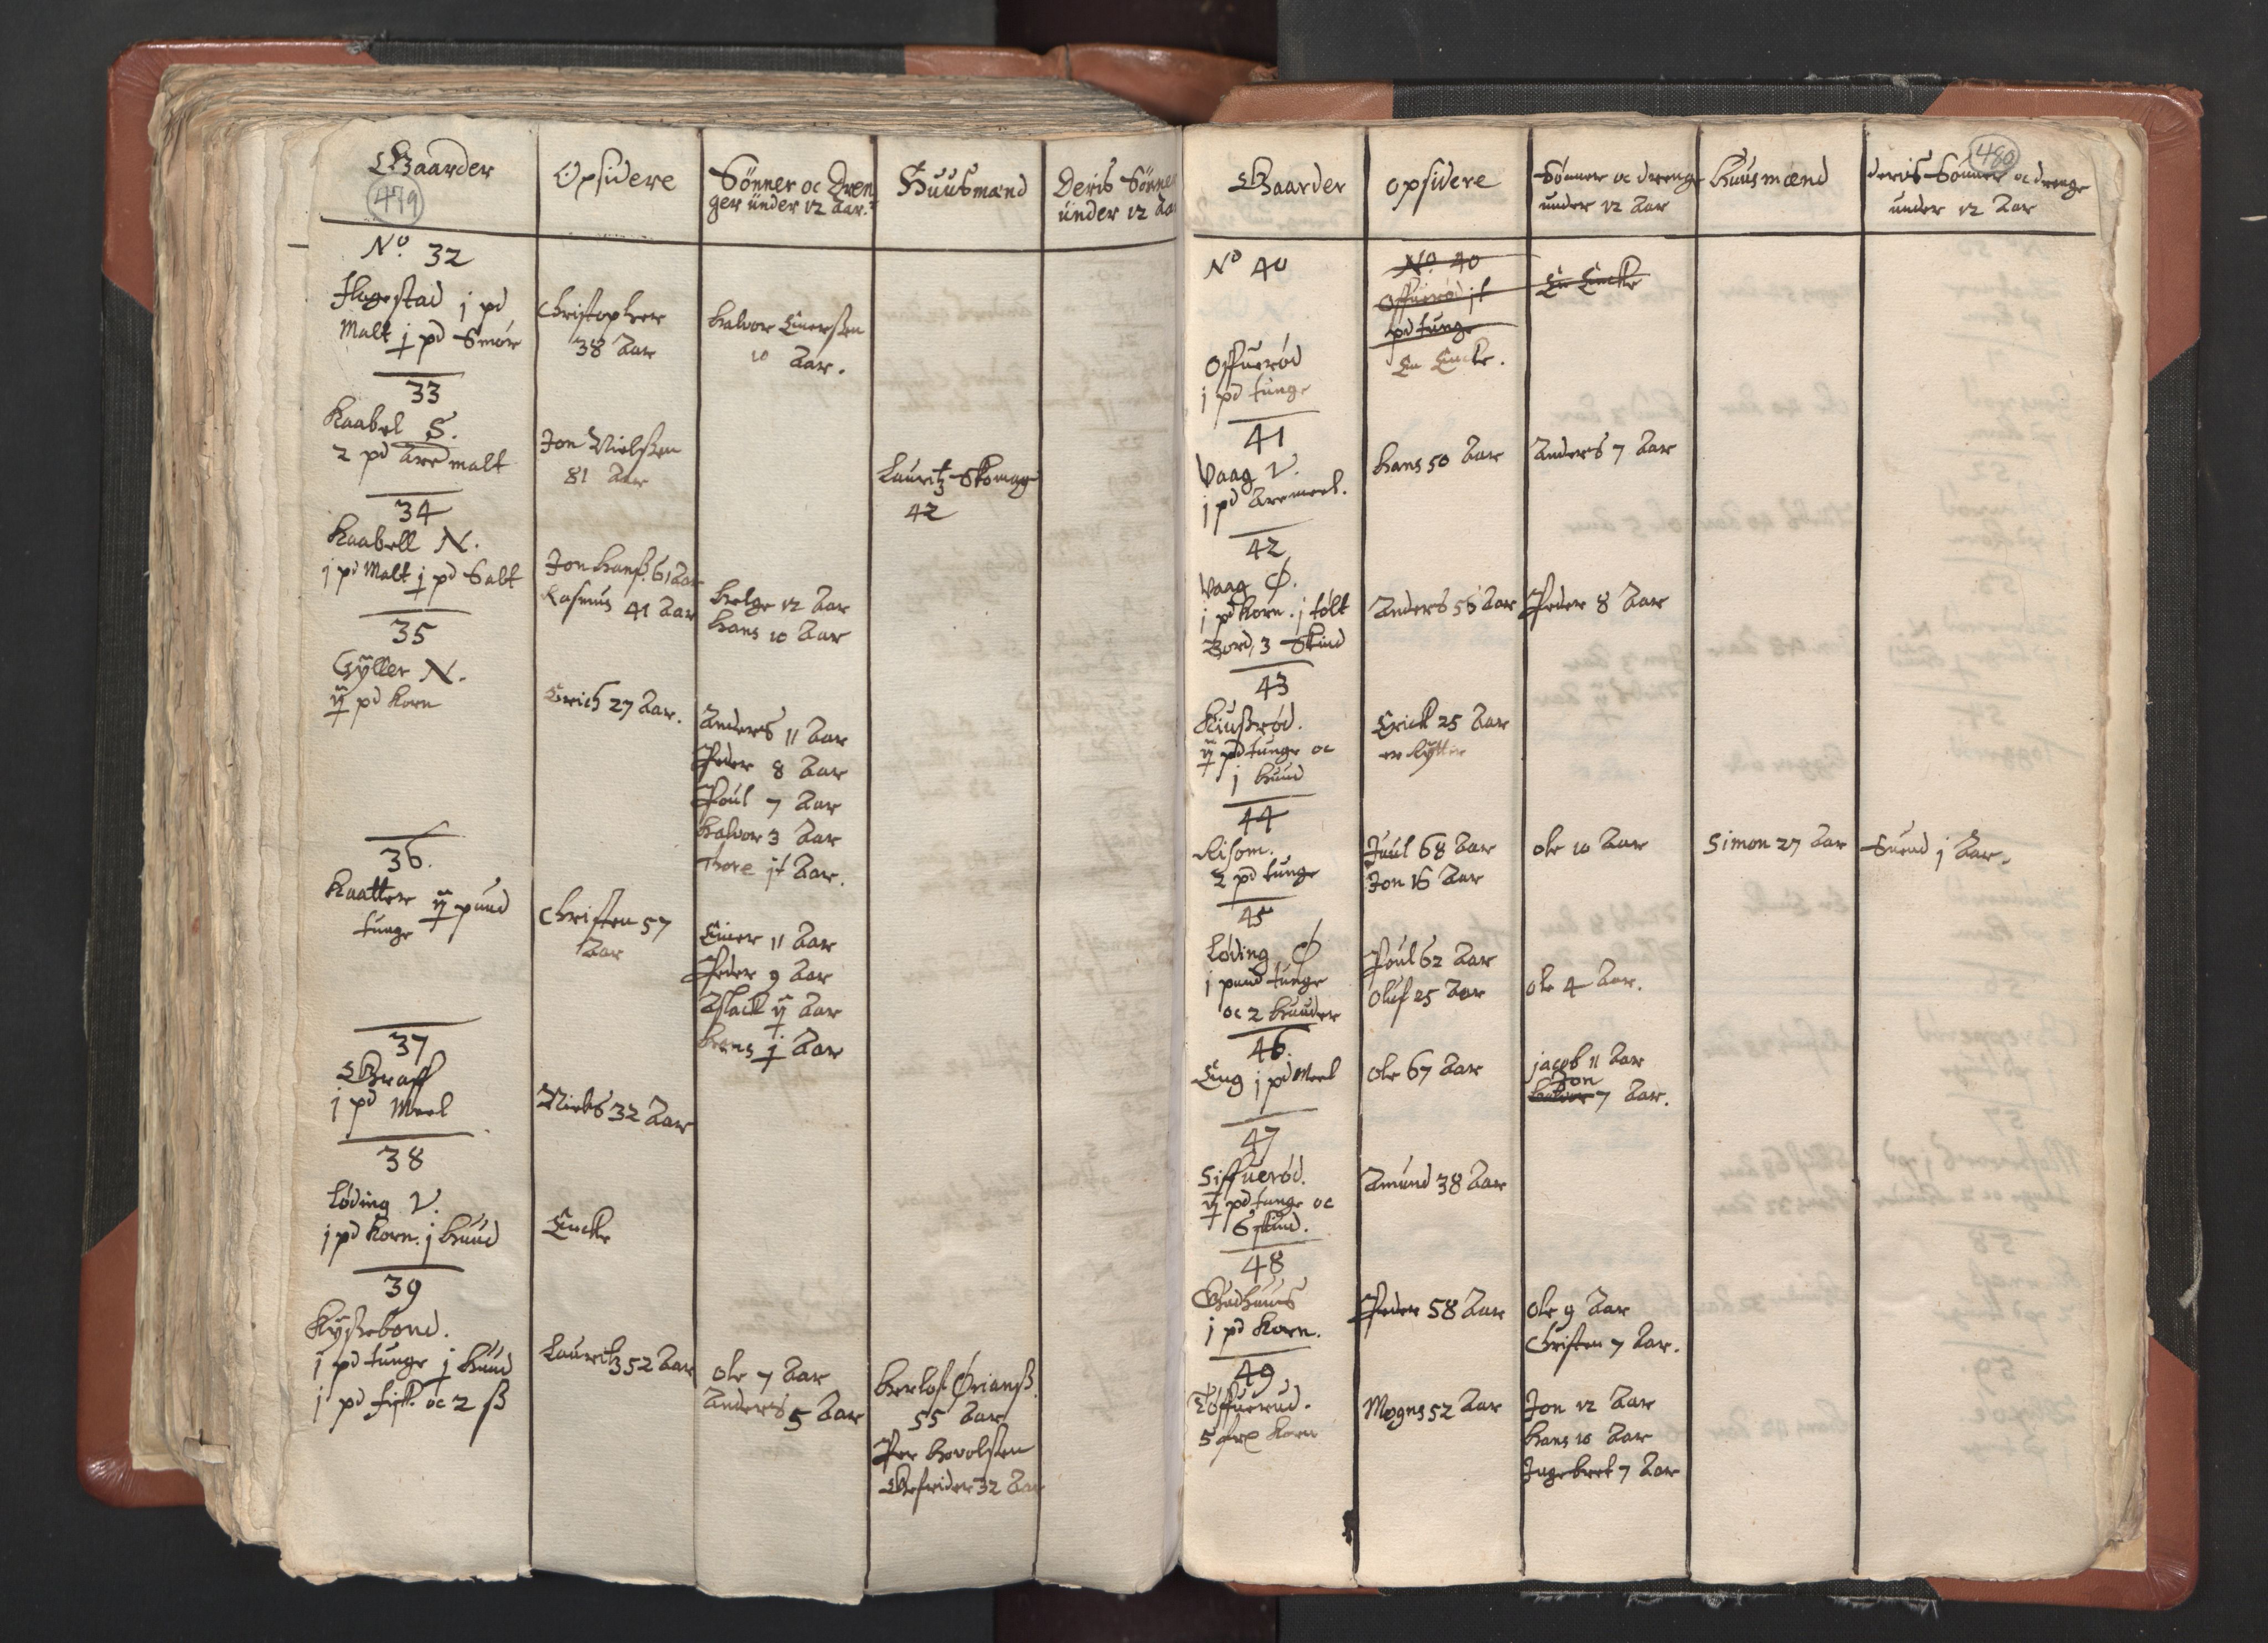 Gaarder
479
Opsidere
Sønner oc Dren
ger under 12 Aar
Huusmænd
Deris Sønner
under 12 Aar
No. 32
Hagestad j pd
Malt j pd Smør
Christopher
38 Aar
Halvor Einerßen
10 Aar.
33
Kaabel S.
2 pd malt
Jon Nielßen
81 Aar
Lauritz Skomag
42
34
Kaabell N.
j pd Malt j pd Salt
Jon Hanß. 61 Aar
Rasmus 41 Aar
Helge 12 Aar
Hans 10 Aar
35
Gÿller N.
ij pd Korn
Erich 27 Aar.
Anders 11 Aar
Peder 8 Aar
Poul 7 Aar
Halvor 3 Aar
Thore Aar.
36.
Kaatter ij pund
tunge
Christen 57
Aar
Einer 11 Aar
Peder 9 Aar
Aslack ij Aar
Hans j Aar
37
Graff
j pd Meel
Niels 32 Aar
38
Løding V.
j pd Korn. j Huud
Encke
39
Kÿßebond.
j pd tunge j Huud
j pd fisk. oc 2 ß
Lauritz 52 Aar
Ole 7 Aar
Anders 5 Aar
Herlof Ørianß.
55 Aar
Per Hovolßen
Gefrider 32 Aar
Gaarder
opsidere
Sønner oc drenge
under 12 Aar
Huusmænd
480
deris Sønner oc drenge
under 12 Aar
No 40
No. 40
Offuerød jt
pd tunge
En Encke
Offuerød
j pd tunge
En Encke.
41
Vaag V.
j pd
Hans 50 Aar
Anders 7 Aar
42
Vaag Ø.
j pd Korn. j tølt
Bord, 3 Skind
Anders 56 Aar
Peder 8 Aar
43
Kiußrød.
ij pd tunge oc
j Huud
Erick 25 Aar
er Rÿtter
44
Risom.
2 pd tunge
Juul 68 Aar
Jon 16 Aar
Ole 10 Aar
Simon 27 Aar
Suend j Aar.
45
Løding Ø
j pund tunge
oc 2 Huuder
Poul 62 Aar
Oluf 25 Aar
Ole 4 Aar.
46.
Eng j pd Meel
Ole 67 Aar
jacob 11 Aar
Jon
Halvor 7 Aar.
47
Siffuerød.
ij pd tunge oc
6 skind.
Amund 38 Aar
48
Gudhuus
j pd Korn.
Peder 58 Aar
Ole 9 Aar
Christen 7 Aar.
49
Tøffuerud.
5 Korn
Mogns 52 Aar
Jon 12 Aar
Hans 10 Aar
Ingebret 7 Aar